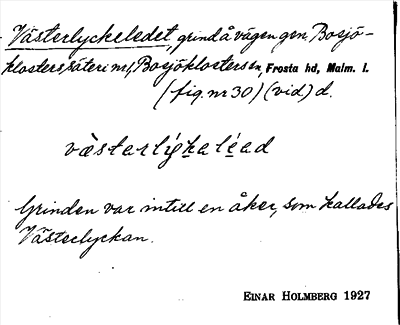 Västerlyckeledet, grind å vägen gm. Bosjö-
klosters säteri nr 1, Bosjöklosters sn, Frosta hd, Malm. l.
(fig. nr 30) (vid) d.
Grinden var intill en åker, som kallades
Västerlyckan.
EINAR HOLMBERG 1927